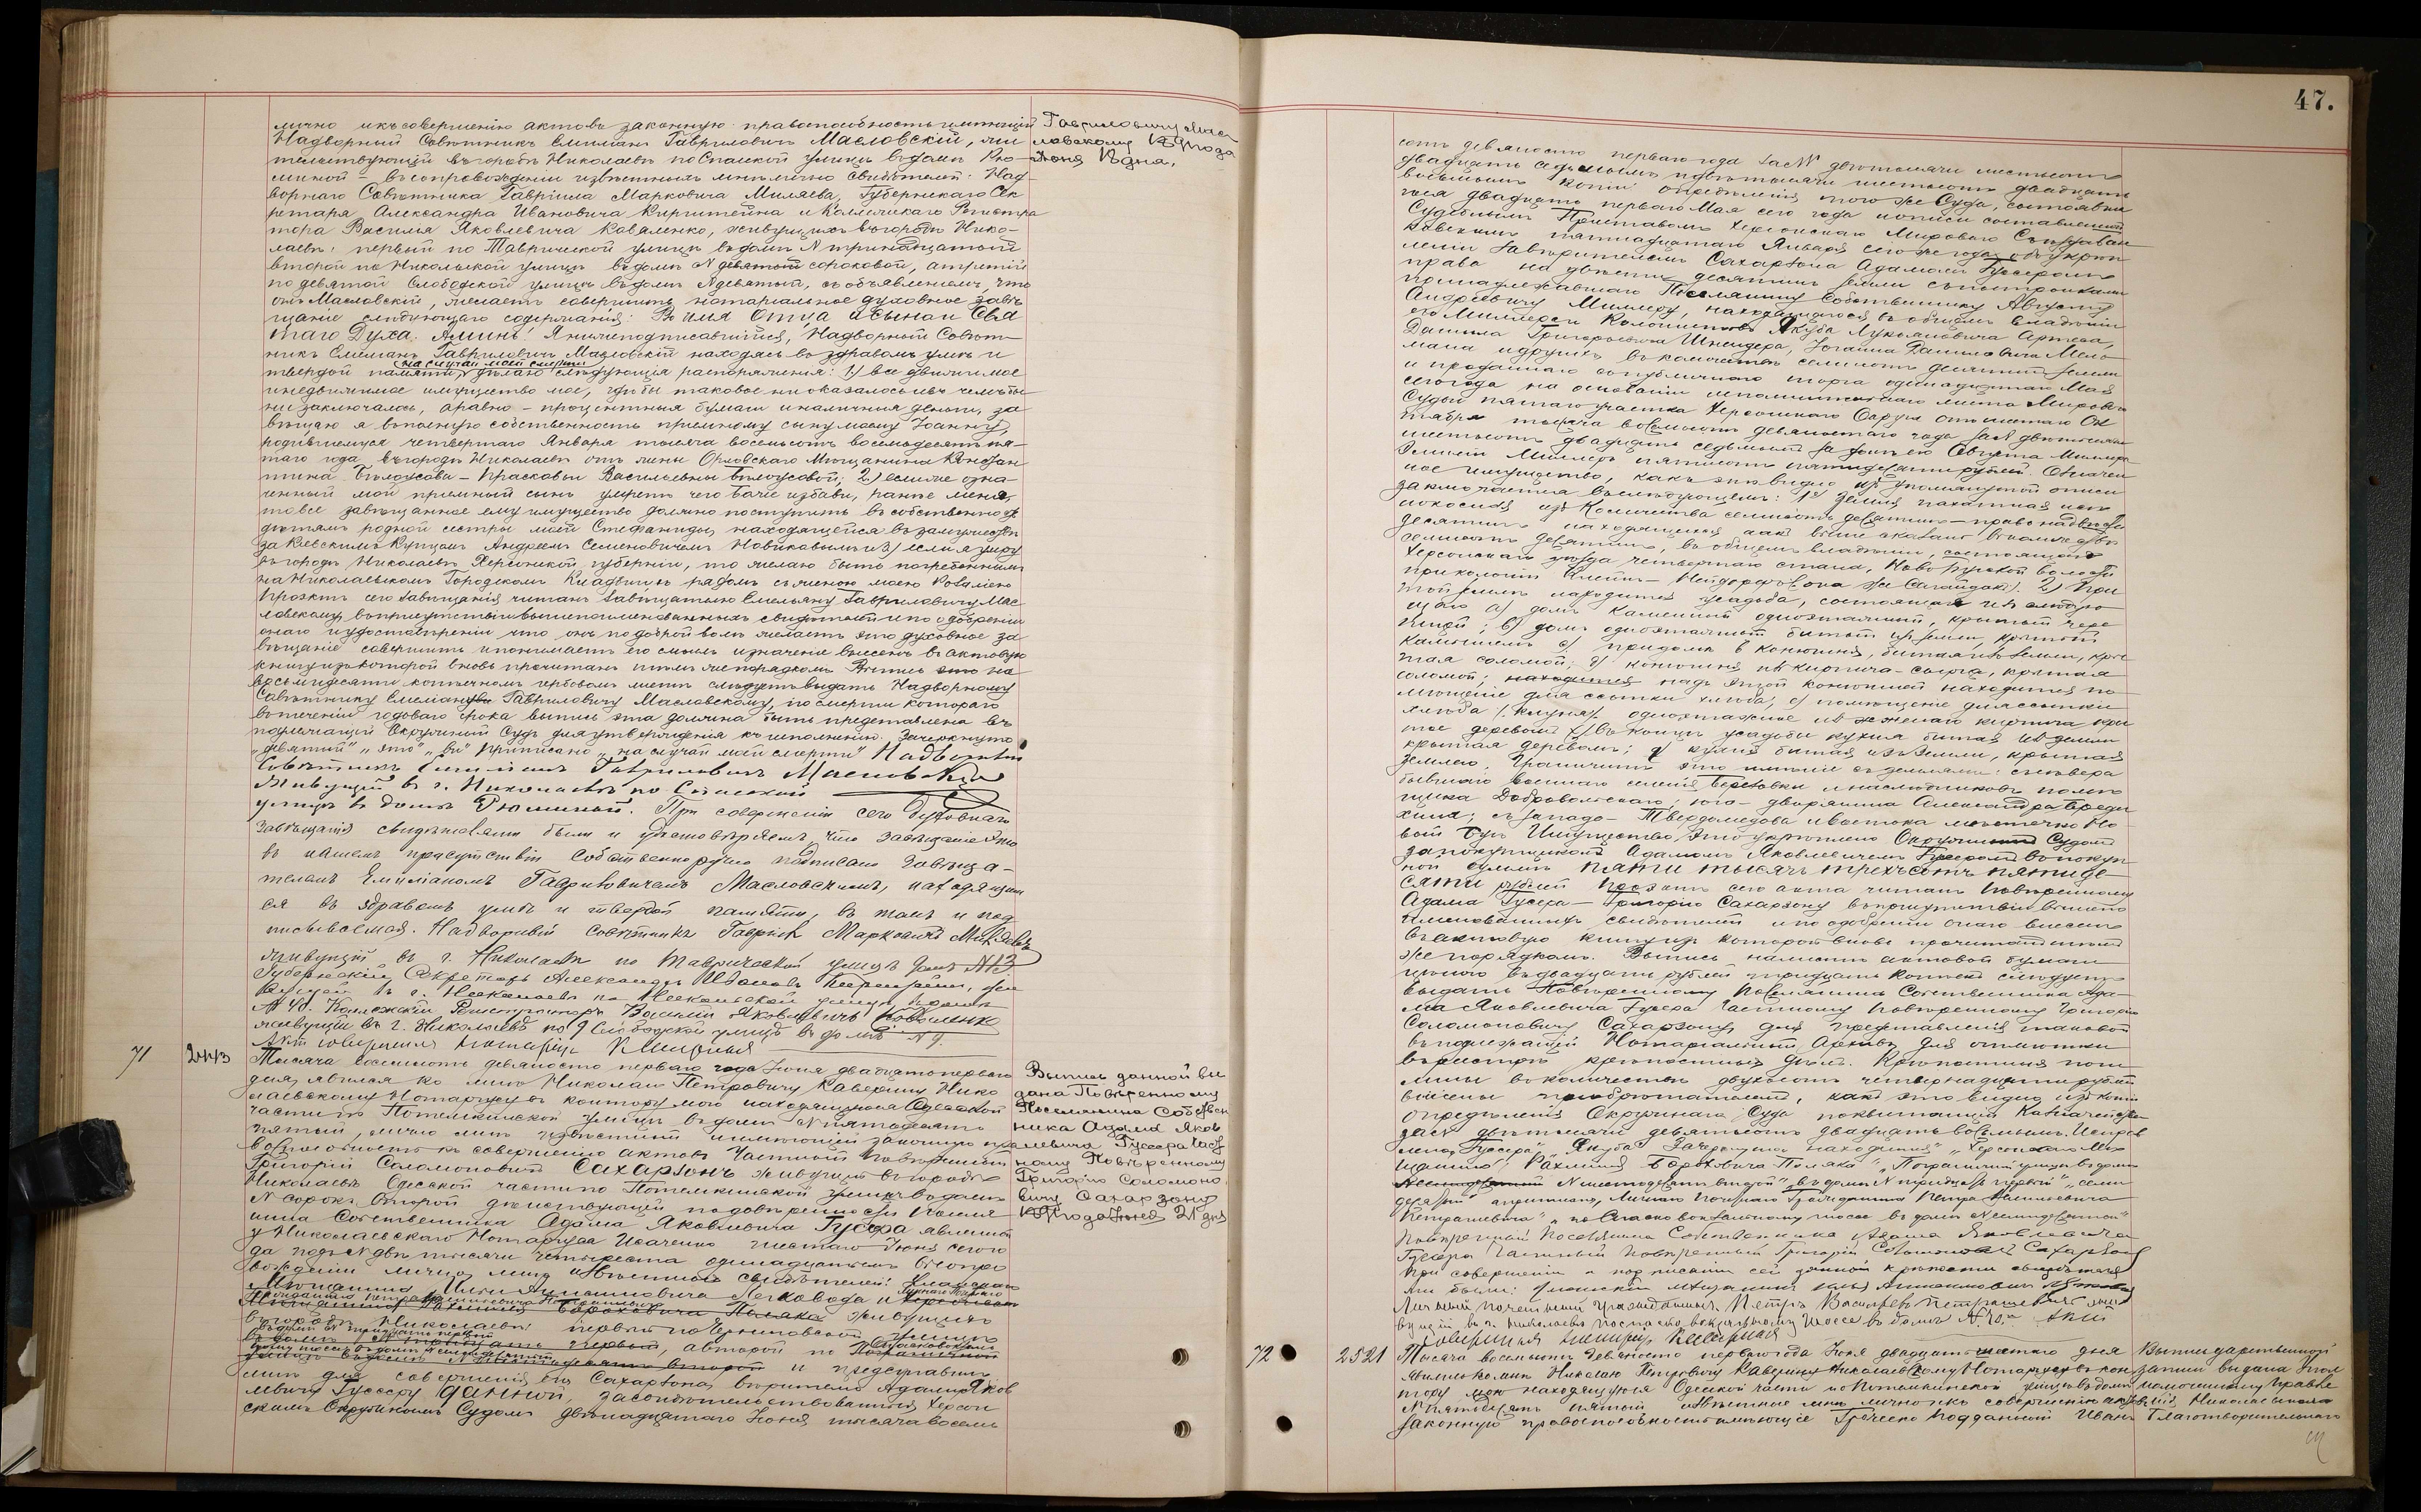 лично и къ совершенію актовъ законную правоспособность имѣющій
Надворный Совѣтникъ Емиліанъ Гавриловичъ Масловскій, жи
тельствующій въ городѣ Николаевѣ по Спасской улицѣ въ домѣ Рю-
миной – въ сопровожденіи извѣстныхъ мнѣ лично свидѣтелей: Над
ворнаго Совѣтника Гавріила Марковича Миляева, Губернскаго Сек
ретаря Александра Ивановича Кирштейна и Коллежскаго Регистра
тора Василія Яковлевича Коваленко, живущихъ въ городѣ Нико-
лаевѣ: первый по Таврической улицѣ въ домѣ N тринадцатомъ
второй по Никольской улицѣ въ домѣ N девятой сороковой, а третій
по девятой Слободской улицѣ въ домѣ N девятый, съ объявленіемъ, что
онъ Масловскій, желаетъ совершить нотаріальное духовное завѣ
щаніе слѣдующаго содержанія: Во имя Отца и Сына и Свя
таго Духа. Аминь! Я нижеподписавшійся, Надворный Совѣт-
никъ Емиліанъ Гавриловичъ Масловскій находясь въ здравомъ умѣ и
на случай моей смерти
твердой памяти, дѣлаю слѣдующія распоряженія: 1) все движимое
и недвижимое имущество мое, гдѣ бы таковое ни оказалось и въ чемъ бы
ни заключалось, а равно – процентныя бумаги и наличныя деньги, за
вѣщаю я въ полную собственность пріемному сыну моему Іоанну,
родившемуся четвертаго Января тысяча восемьсотъ восемьдесятъ пя-
таго года въ городѣ Николаевѣ отъ жены Орловскаго Мѣщанина Констан
тина Бѣлоусова – Прасковьи Васильевны Бѣлоусовой; 2) если же озна-
ченный мой пріемный сынъ умретъ чего Боже избави, ранѣе меня,
то все завѣщанное ему имущество должно поступить въ собственность
дѣтямъ родной сестры моей Стефаниды, находящейся въ замужествѣ
за Кіевскимъ Купцомъ Андреемъ Семеновичемъ Новиковымъ и 3) если я умру
въ городѣ Николаевѣ Херсонской губерніи, то желаю быть погребеннымъ
на Николаевскомъ Городскомъ Кладбищѣ рядомъ съ женою моею
Проэктъ сего завѣщанія читанъ завѣщателю Емельяну Гавриловичу Мас
ловскому, въ присутствіи вышепоименованныхъ свидѣтелей и по одобреніи
онаго и удостовѣреніи что онъ по доброй волѣ желаетъ это духовное за
вѣщаніе совершить и понимаетъ его смыслъ и значеніе внесенъ въ актовую
книгу изъ которой вновь прочитанъ тѣмъ же порядкомъ. Выпись это на
восьмидесяти копѣечномъ гербовомъ листѣ слѣдуетъ выдать Надворному
Совѣтнику Емеліану Гавриловичу Масловскому, по смерти котораго
въ теченіи годоваго срока выпись эта должна быть представлена въ
подлежащій Окружный Судъ для утвержденія къ исполненію. Зачеркнуто
„девятый" „это" „въ" приписано „на случай моей смерти" Надворный
Совѣтникъ Емиліанъ Гавриловичъ Масловскій
Живущій въ г. Николаевѣ по Спасской
улицѣ въ домѣ Рюминой. При совершеніи сего духовнаго
завѣщанія свидѣтелями были и удостовѣряемъ, что завѣщаніе это
въ нашемъ присутствіи собственноручно подписано завѣща-
телемъ Емиліаномъ Гавриловичемъ Масловскимъ, находящим
ся въ здравомъ умѣ и твердой памяти, въ томъ и под
писываемся. Надворный Совѣтникъ Гавріилъ Марковичъ Миляевъ
живущій въ г. Николаевѣ по Таврической улицѣ домъ N 13.
Губернскій Секретарь Александръ Ивановъ Кирштейнъ, жи
вущій въ г. Николаевѣ по Никольской улицѣ домъ
N 40. Коллежскій Регистраторъ Василій Яковлевичъ Коваленко
живущій въ г. Николаевѣ по 9 Слободской улицѣ въ домѣ N 9.
Актъ совершилъ Нотаріусъ
Гавриловичу Мас
ловскому года
Іюня дна.
71
2443
Тысяча восемьсотъ девяносто перваго года Іюня двадцать перваго
дня, явился ко мнѣ Николаю Петровичу Каверину Нико
лаевскому Нотаріусу въ контору мою находящуюся Одесской
части по Потемкинской улицѣ въ домѣ N пятьдесятъ
пятый, лично мнѣ извѣстный имѣющій законную пра
воспособность къ совершенію актовъ Частный повѣренный
Григорій Соломоновичъ Сахарзонъ живущій въ городѣ
Николаевѣ Одесской части по Потемкинской улицѣ въ домѣ
N сорокъ второй дѣйствующій по довѣренности Поселя
нина Собственника Адама Яковлевича Гуссера явленной
у Николаевскаго Нотаріуса Исаченко шестаго Іюня сего го
да подъ N двѣ тысячи четыреста одинадцатымъ въ сопро
вожденіи лично мнѣ извѣстныхъ свидѣтелей:
Мѣщанина
Мѣщанина Бороховича Поляка живущихъ
въ городѣ Николаевѣ первый по Черниговской улицѣ
въ домѣ N тридцать первый
въ домѣ N первый, а второй по
въ домѣ второй и предъявилъ
мнѣ для совершенія Сахарзонъ, вѣрителю Адаму Яков
левичу Гуссеру данной, засвидѣтельствованныя Херсон
скимъ Окружнымъ Судомъ двѣнадцатаго Іюня тысяча восемь
Выпись данной вы
дана Повѣренному
Поселянина Собствен
ника Адама Яков
левича Гуссера Част
ному Повѣренному
Григорію Соломоно
вичу Сахарзону
года Іюня 21 дня
47.
сотъ девяносто перваго года за N двѣ тысячи шестьсотъ
двадцать седьмымъ и двѣ тысячи шестьсотъ двадцать
восьмымъ копіи опредѣленія того же Суда, состоявша
гося двадцать перваго Мая сего года и описи составленной
Судебнымъ Приставомъ Херсонскаго Мироваго Съѣзда
пятнадцатаго Января сего же года объ укрѣп
леніи за вѣрителемъ Сахарзона Адамомъ Гуссеромъ
права на двѣсти десятинъ земли съ постройками
принадлежавшаго Поселянину Собственнику Августу
Андреевичу Миллеру, находящагося въ общемъ владѣніи
его Миллера и Колонистовъ Якуба Лукьяновича Артеса,
Данила Григорьевича Шнейдера, Іоганна Даниловича Мель
мана и другихъ въ количествѣ семисотъ десятинъ земли
и проданнаго съ публичнаго торга одинадцатаго Мая
сего года на основаніи исполнительнаго листа Мироваго
Судьи пятаго участка Херсонскаго Округа отъ шестаго Ок
тября тысяча восемьсотъ девяностаго года за N двѣ тысячи
шестьсотъ двадцать седьмымъ за долгъ его Августа Миллера
Эмиліи Миллеръ пятисотъ пятидесяти рублей. Означен
ное имущество, какъ это видно изъ упомянутой описи
заключается въ слѣдующемъ: 1) Земля пахатная и сѣ
нокосная изъ количества семисотъ десятинъ – право на двѣсти
десятинъ находящихся какъ выше сказано въ количествѣ
семисотъ десятинъ, въ общемъ владѣніи, состоящая
Херсонскаго уѣзда четвертаго стана, Новобугской волости
при колоніи Клейнъ-Нейдорфъ (она же Сагайдакъ). 2) При
той землѣ находится усадьба, состоящая изъ слѣдую
щаго а) домъ каменный одноэтажный, крытый чере
пицей; б) домъ одноэтажный битый изъ земли, крытый
камышемъ в) при домѣ конюшня, битая изъ земли, кры
тая соломой; д) конюшня изъ кирпича-сырца, крытая
соломой; находится надъ этой конюшней находится по
мѣщеніе для ссыпки хлѣба; е) помѣщеніе для ссыпки
хлѣба (клуня) одноэтажное изъ жженаго кирпича кры
тое деревомъ ж) въ концѣ усадьбы кухня битая изъ земли
крытая деревомъ; з) кузня битая изъ земли, крытая
землею. Граничитъ это имѣніе съ землями: съ сѣвера
бывшаго военнаго селенія Березовки и наслѣдниковъ помѣ
щика Добровольскаго; юга – дворянина Александра
съ запада – Твердомедова и востока мѣстечко Но
вый Бугъ. Имущество это укрѣплено Окружнымъ Судомъ
за покупщикомъ Адамомъ Яковлевичемъ Гуссеромъ въ покуп
ной суммѣ пяти тысячъ трехсотъ пятиде
сяти рублей Проэктъ сего акта читанъ повѣренному
Адама Гуссера – Григорію Сахарзону въ присутствіи вышепо
именованныхъ свидѣтелей и по одобреніи онаго внесенъ
въ актовую книгу изъ которой вновь прочитанъ тѣмъ
же порядкомъ. Выпись на листѣ актовой бумаги
цѣною въ двадцать рублей тридцать копѣекъ слѣдуетъ
выдать Повѣренному Поселянина Собственника Ада-
ма Яковлевича Гуссера Частному повѣренному Григорію
Соломоновичу Сахарзону для представленія таковой
въ подлежащій Нотаріальный Архивъ для отмѣтки
въ реестрѣ крѣпостныхъ дѣлъ. Крѣпостныя пош
лины въ количествѣ двухсотъ четырнадцати рублей
внесены пріобрѣтателемъ, какъ это видно изъ копіи
опредѣленія Окружнаго Суда по квитанціи Казначейства
за N двѣ тысячи девятьсотъ двадцать восьмымъ. Исправ
лено „Гуссера", „Якуба" Зачеркнуто „находится" „Херсонскаго Мѣ
щанина" Рахмила Бороховича Поляка" „Пограничной улицѣ въ домѣ
N шестьдесятъ второй" „въ домѣ N тридцать первый" „семи
десятый" а приписано, Личнаго Почетнаго Гражданина Петра Васильевича
Петрашевича" „по Спасско вокзальному шоссе въ домѣ N семидесятый"
Повѣренный Поселянина Собственника Адама Яковлевича
Гуссера Частный повѣренный Григорій Соломоновъ Сахарзонъ
При совершеніи и подписаніи сей данной крѣпости свидѣтеля
ми были:
Личный почетный гражданинъ Петръ Васильевъ Петрашевичъ жи
вущій въ г. Николаевѣ по Спасско вокзальному шоссе въ домѣ N 70. Актъ
совершилъ Нотаріусъ
72
2521
Тысяча восемьсотъ девяносто перваго года Іюня двадцать шестаго дня
явились ко мнѣ Николаю Петровичу Каверину Николаевскому Нотаріусу въ кон
тору мою находящуюся Одесской части по Потемкинской улицѣ въ домѣ
N пятьдесятъ пятый извѣстные мнѣ лично и къ совершенію актовъ
законную правоспособность имѣющіе Греческо подданный Иванъ
Выпись дарственной
записи выдана упол
номоченному правле
нія Николаевскаго
Благотворительнаго